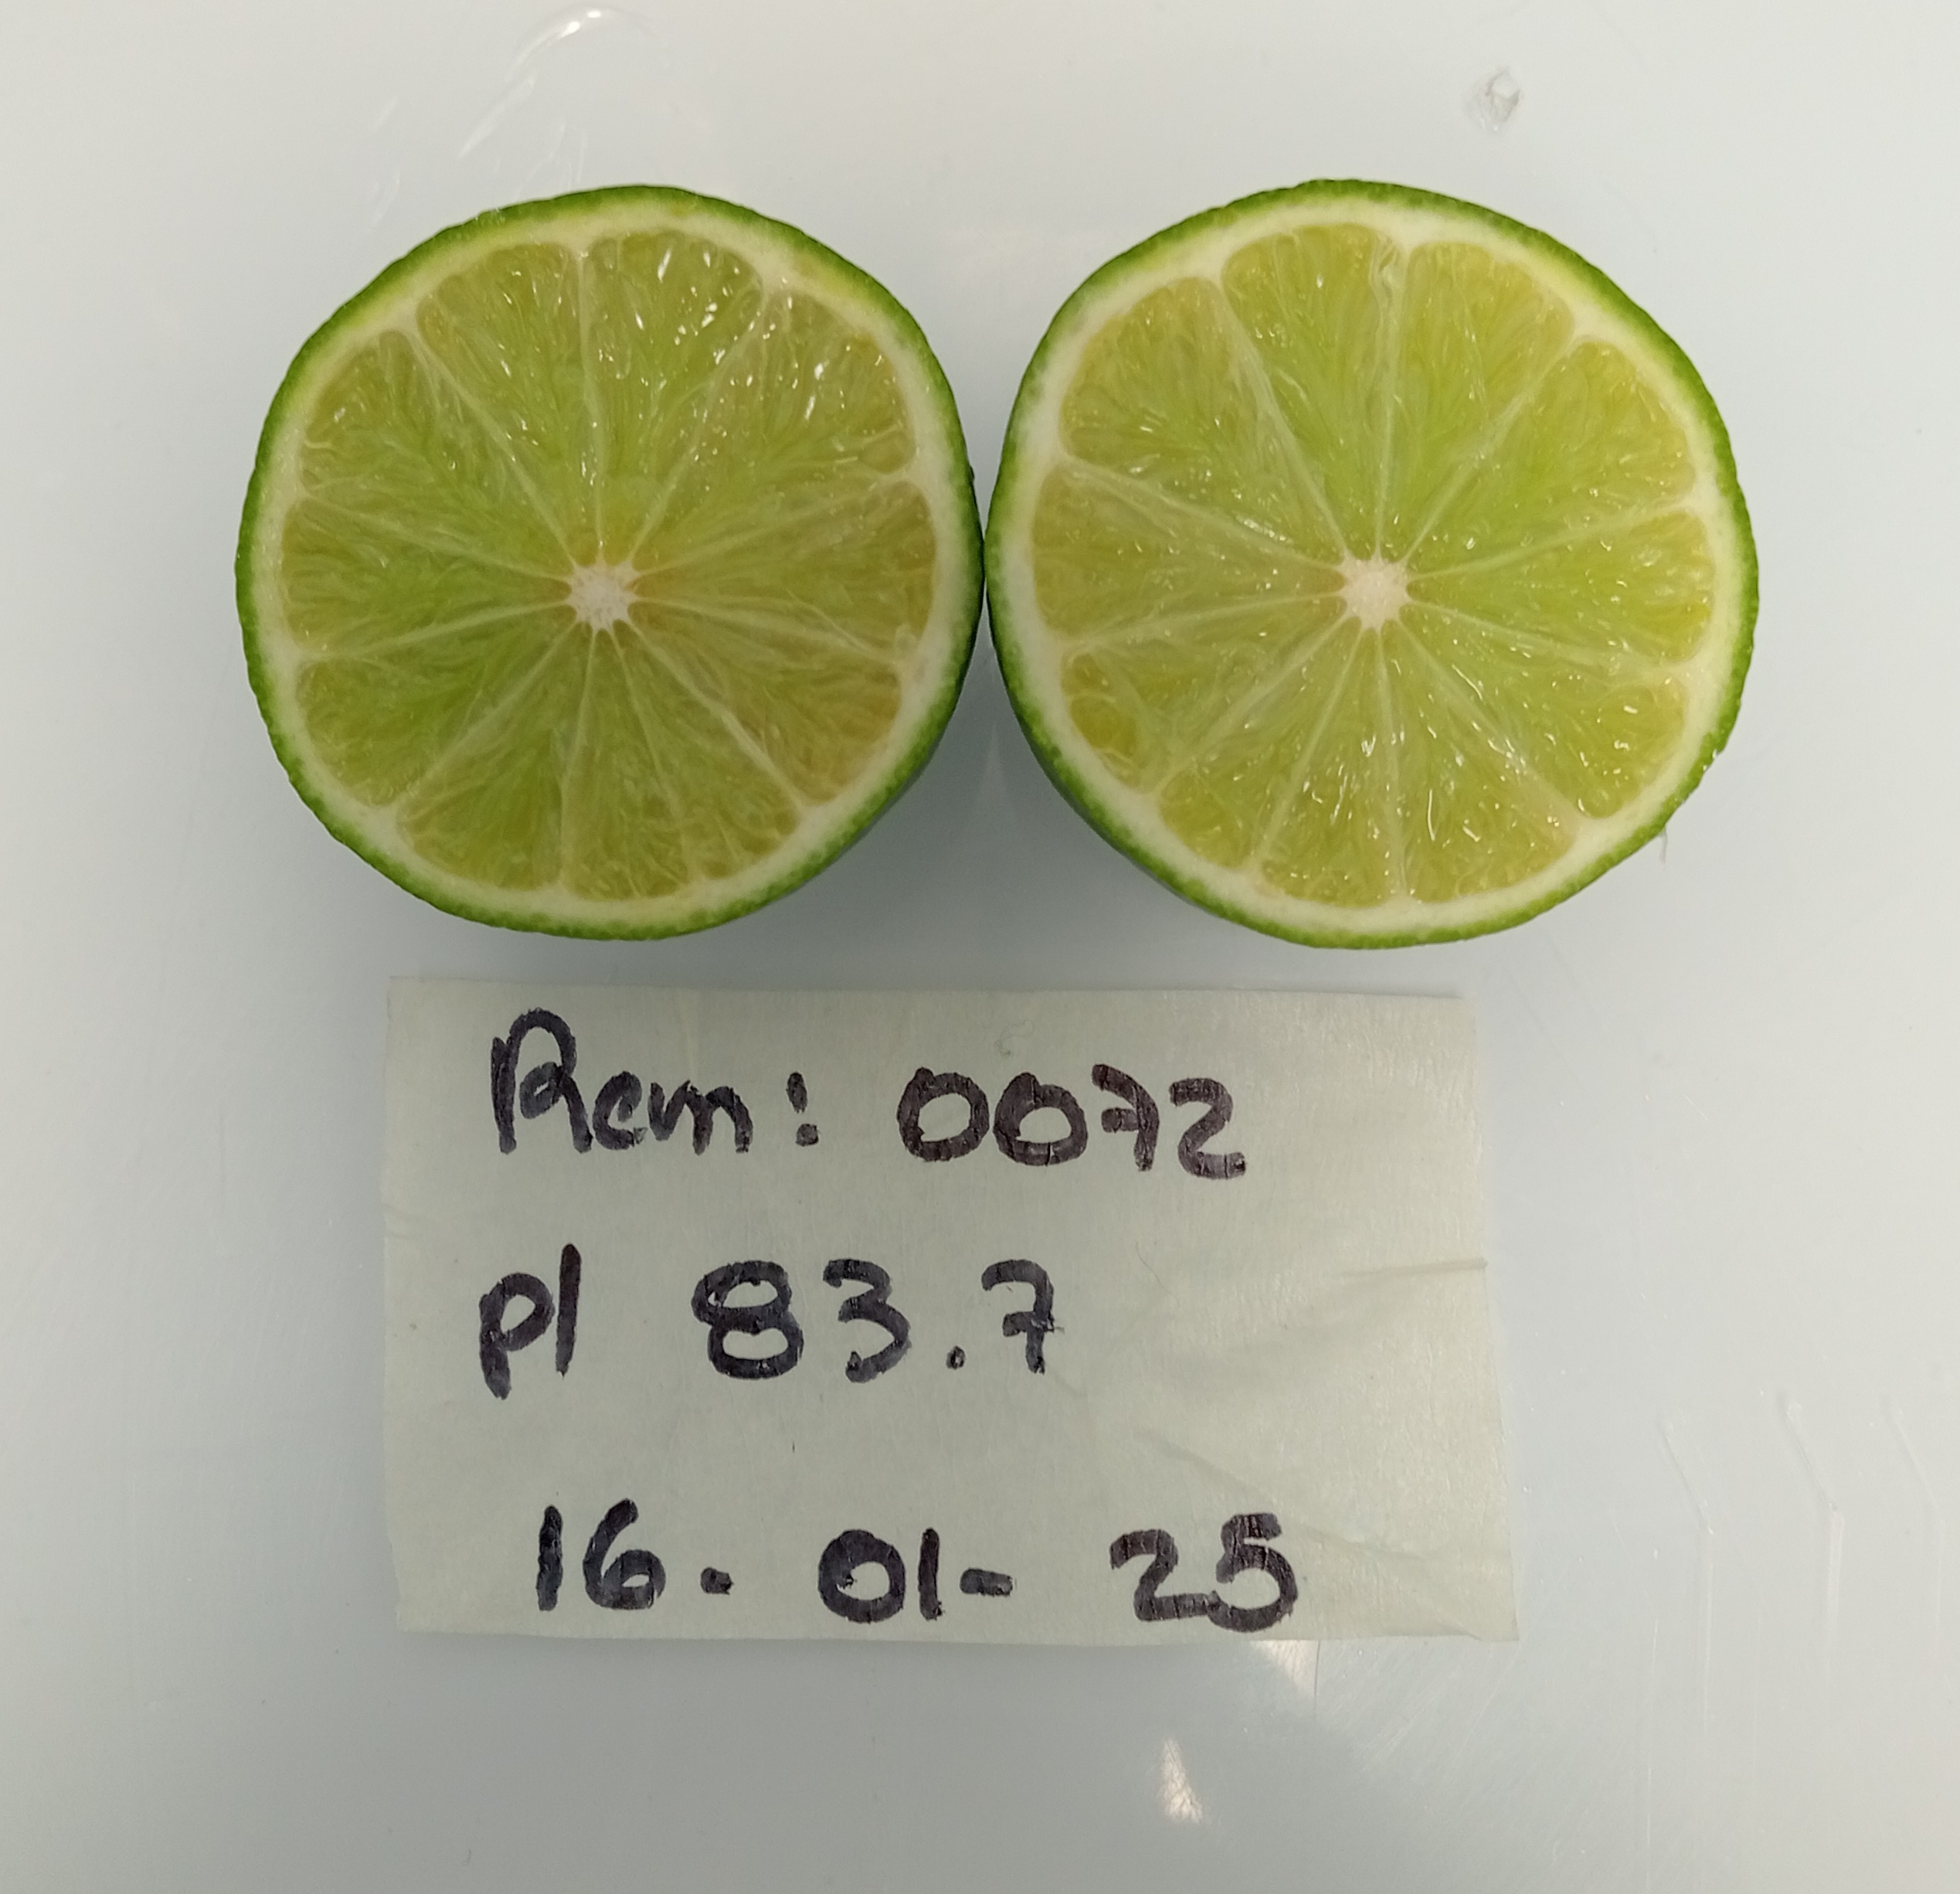 Rem: 0072
pl 83.7
16. 01- 25